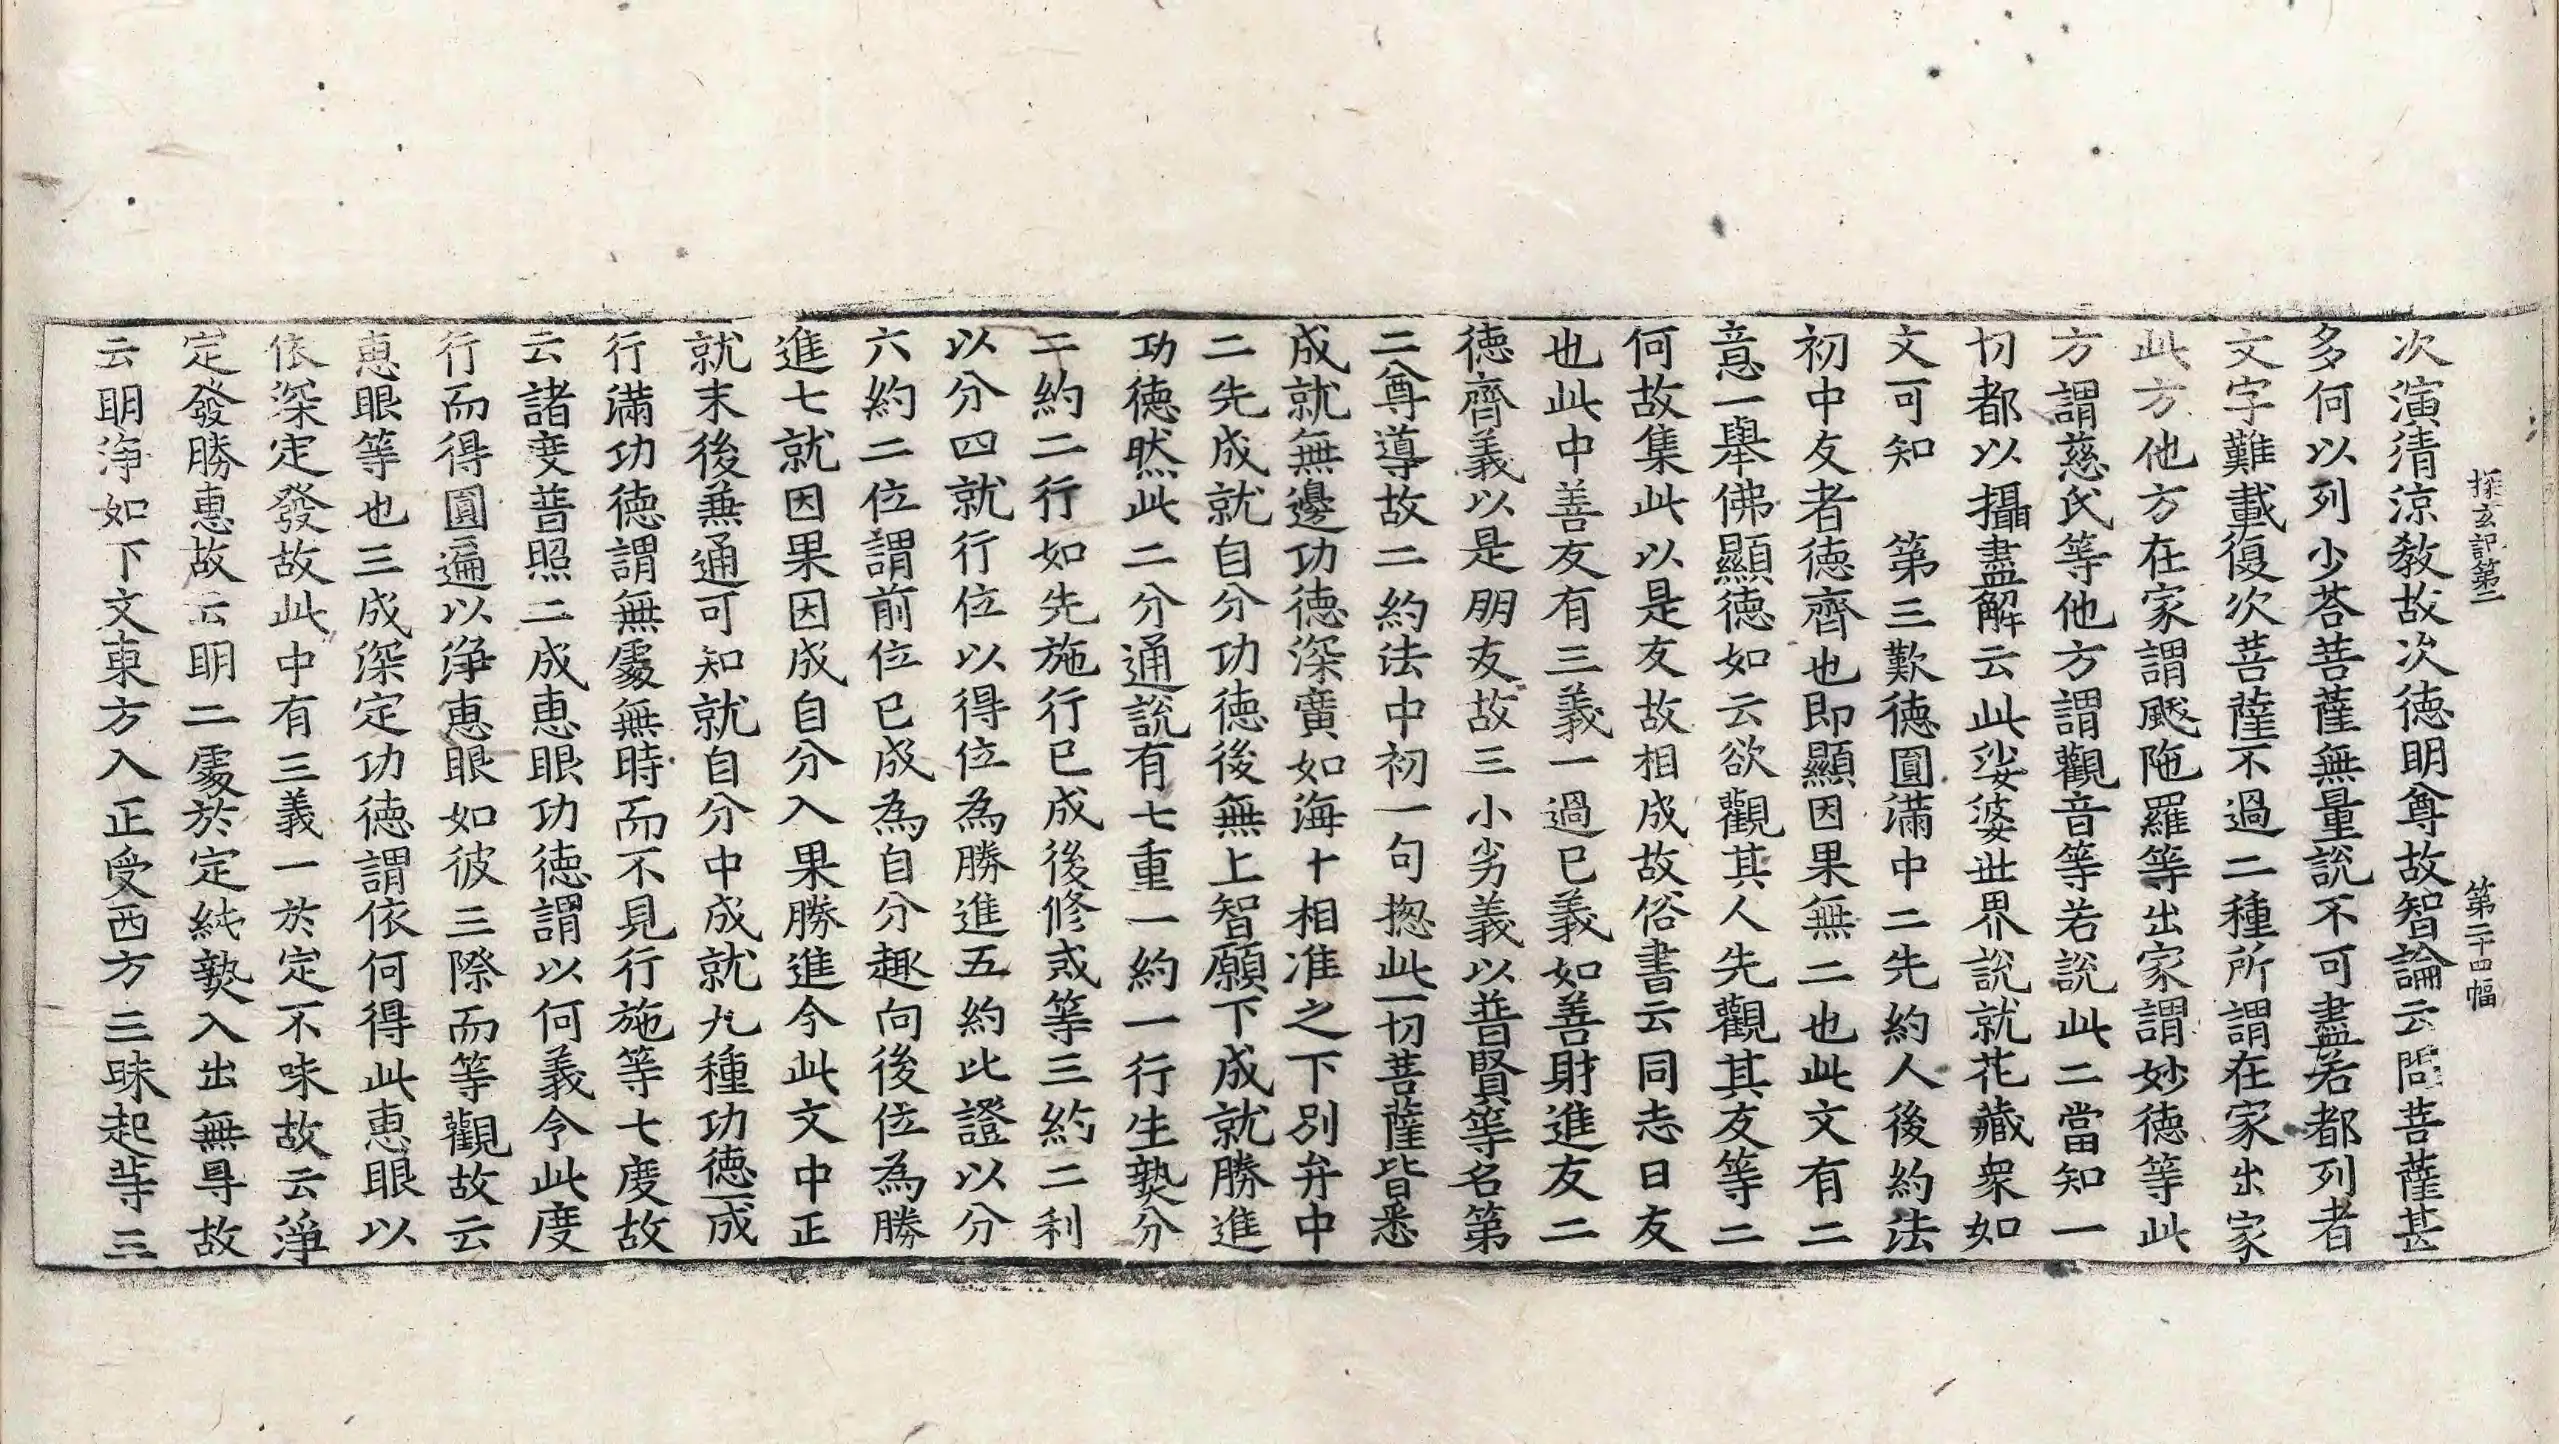 探玄記第二　第二十四幅
次演清涼教故次德明尊故智論云問菩薩甚
多何以列少荅菩薩無量說不可盡若都列者
文字難載復次菩薩不過二種所謂在家出家
此方他方在家謂颰陁羅等出家謂妙德等此
方謂慈氏等他方謂觀音等若說此二當知一
切都以攝盡解云此娑婆世界說就花藏衆如
文可知　第三歎德圓滿中二先約人後約法
初中友者德齊也即顯因果無二也此文有二
意一舉佛顯德如云欲觀其人先觀其友等二
何故集此以是友故相成故俗書云同志日友
也此中善友有三義一過已義如善財進友二
德齊義以是朋友故三小劣義以普賢等名第
二尊導故二約法中初一句揔此一切菩薩皆悉
成就無邊功德深廣如海十相准之下別弁中
二先成就自分功德後無上智願下成就勝進
功德然此二分通說有七重一約一行生𤍠分
二約二行如先施行已成後修戒等三約二利
以分四就行位以得位為勝進五約比證以分
六約二位謂前位已成為自分趣向後位為勝
進七就因果因成自分入果勝進今此文中正
就末後無通可知就自分中成就九種功德一成
行滿功德謂無處無時而不見行施等七度故
云諸度普照二成惠眼功德謂以何義今此度
行而得圓遍以淨惠眼如彼三際而等觀故云
惠眼等也三成深定功德謂依何得此惠眼以
依深定發故此中有三義一於定不味故云淨
定發勝惠故云明二處於定純𤍠入出無㝵故
云明淨如下文東方入正受西方三昧起等三